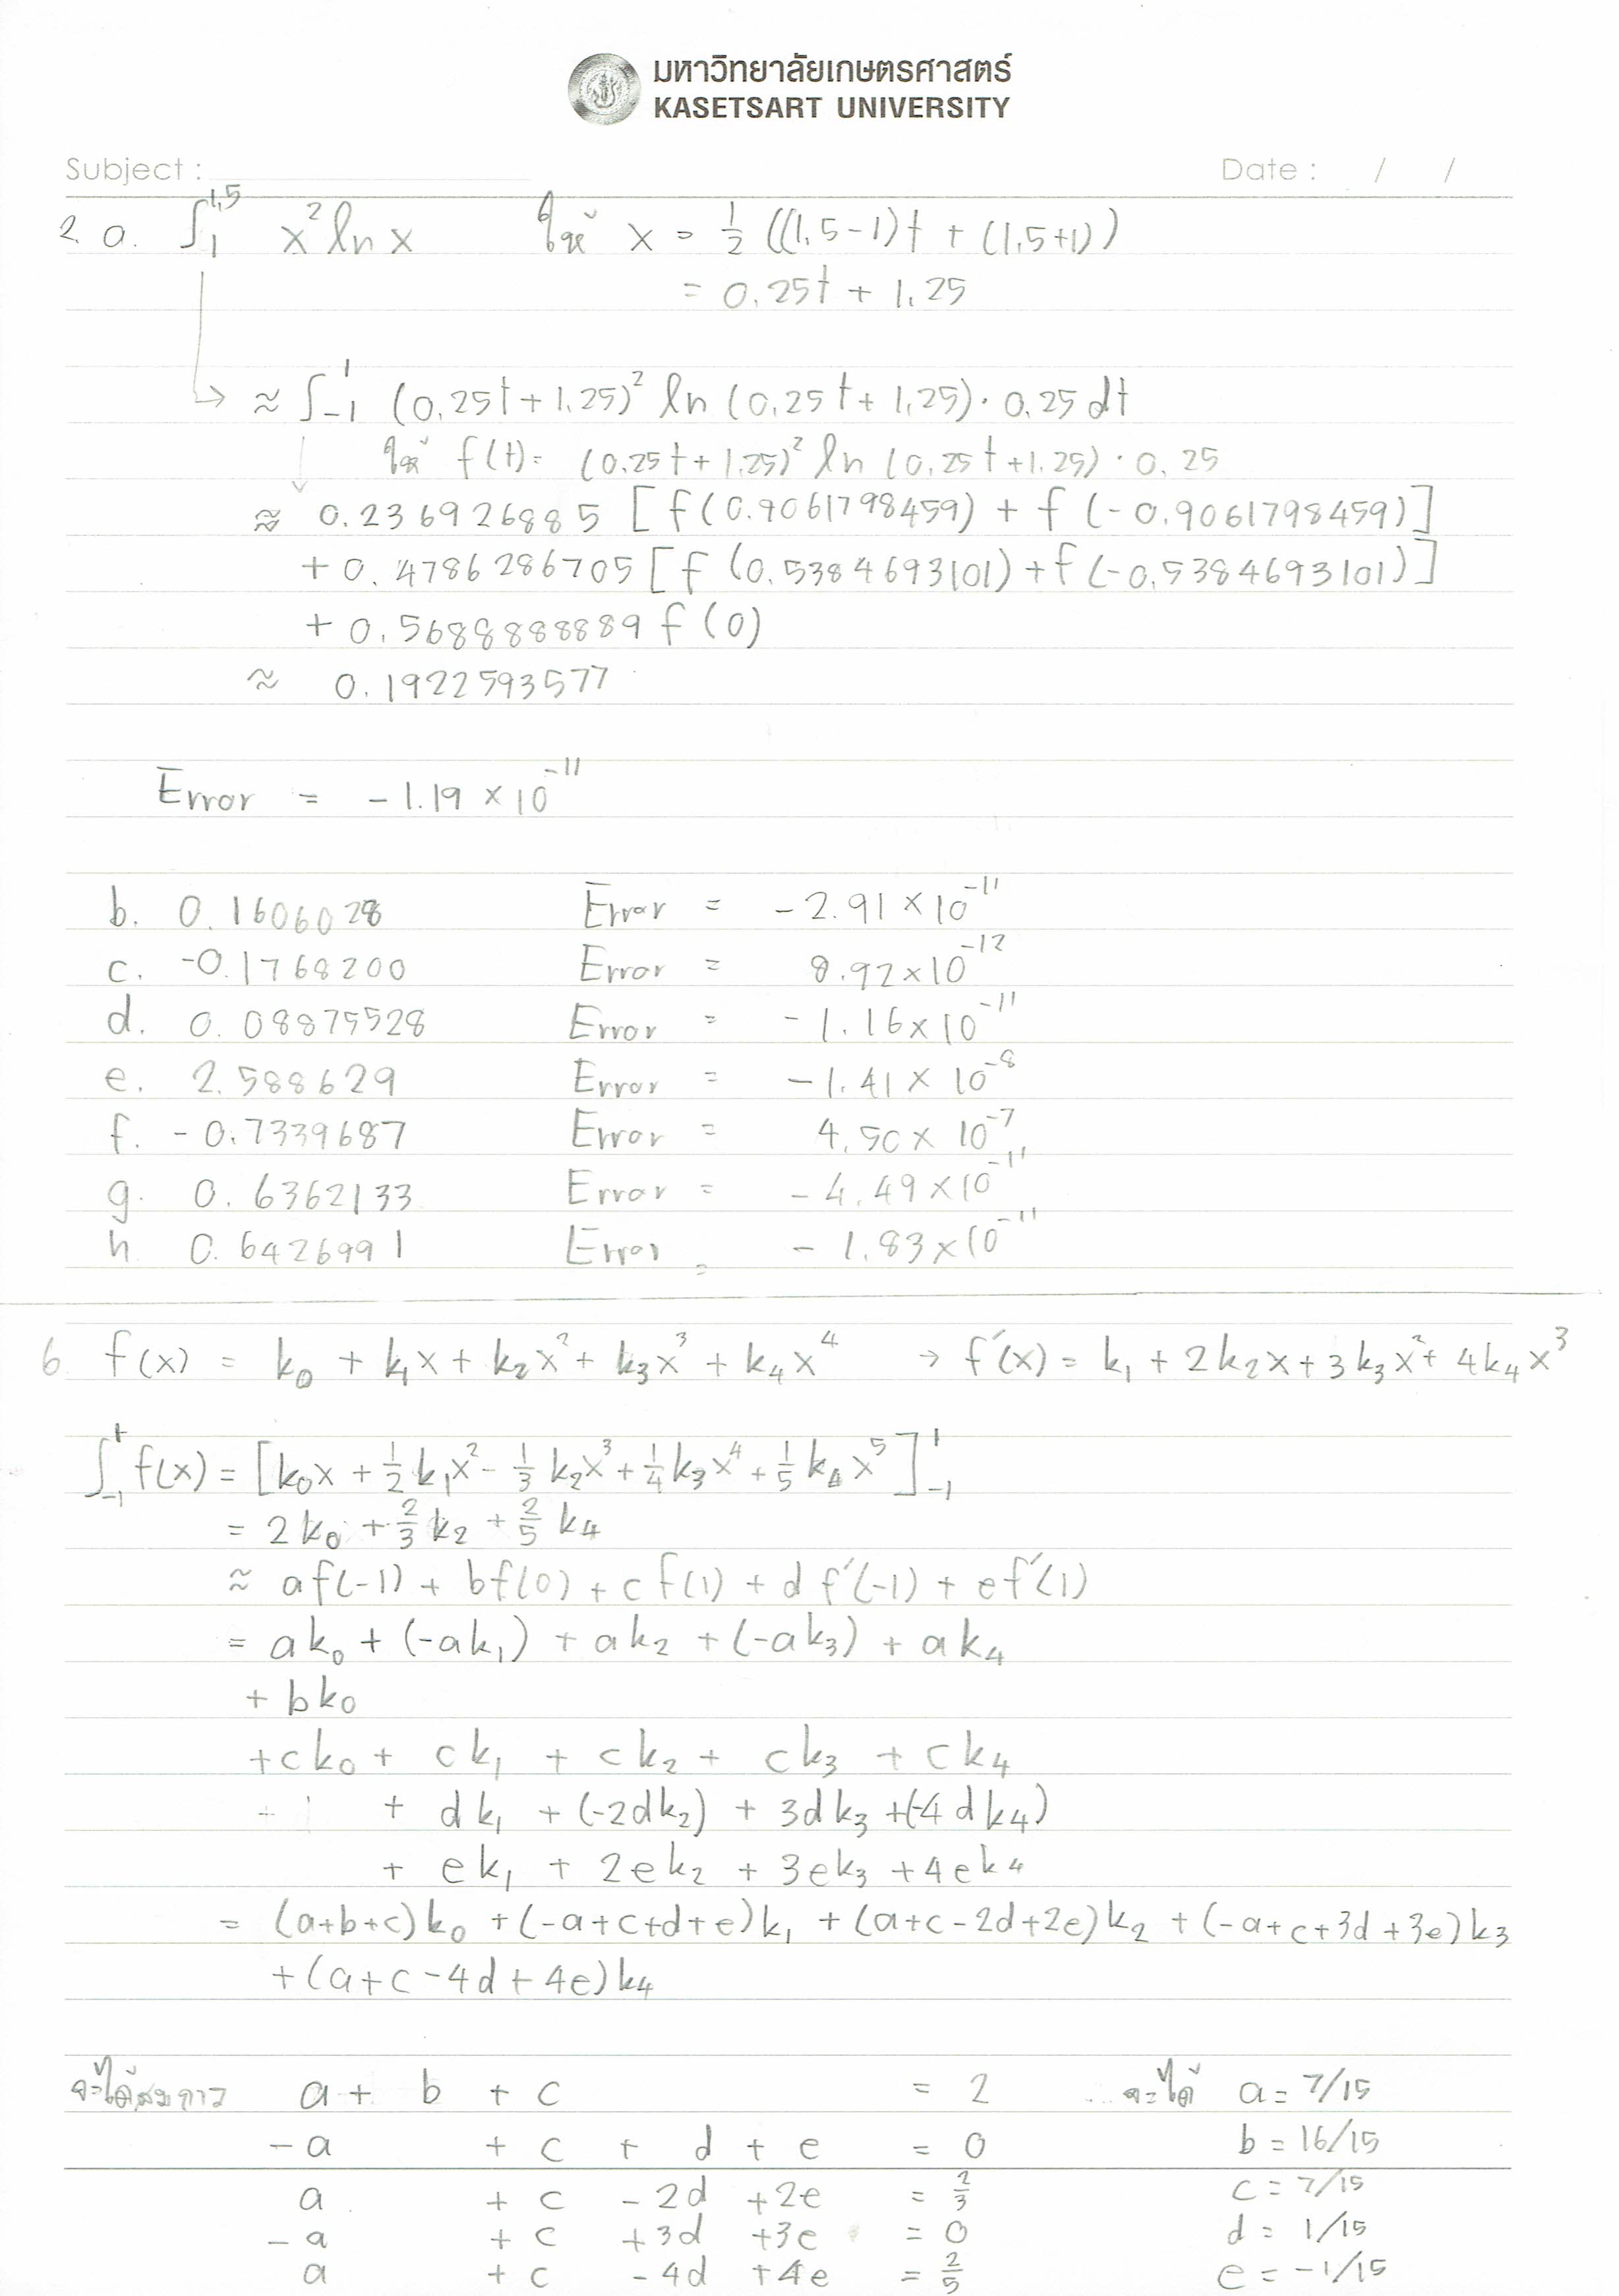 มหาวิทยาลัยเกษตรศาสตร์
KASETSART UNIVERSITY
Subject : Date : / /
2. a. ∫₁^1,5 x² ln x ให้ x = 1/2 ((1,5-1)t + (1,5+1))
= 0.25t + 1.25
≈ ∫₋₁^1 (0.25t+1.25)² ln (0.25t+1.25) · 0.25 dt
ให้ f(t) = (0.25t+1.25)² ln (0.25t+1.25) · 0.25
≈ 0.236926885 [f(0.9061798459) + f(-0.9061798459)]
+ 0.4786286705 [f(0.5384693101) + f(-0.5384693101)]
+ 0.5688888889 f(0)
≈ 0.1922593577
Error = -1.19 × 10⁻¹¹
b. 0.1606028 Error = -2.91 × 10⁻¹¹
c. -0.1768200 Error = 8.92×10⁻¹²
d. 0.08875528 Error = -1.16×10⁻¹¹
e. 2.588629 Error = -1.41 × 10⁻⁸
f. -0.7339687 Error = 4.50 × 10⁻⁷
g. 0.6362133 Error = -4.49×10⁻¹¹
h. 0.6426991 Error = -1.83×10⁻¹¹
6. f(x) = k₀ + k₁x + k₂x² + k₃x³ + k₄x⁴ → f′(x) = k₁ + 2k₂x + 3k₃x² + 4k₄x³
∫₋₁^1 f(x) = [k₀x + 1/2 k₁x² - 1/3 k₂x³ + 1/4 k₃x⁴ + 1/5 k₄x⁵]₋₁^1
= 2k₀ + 2/3 k₂ + 2/5 k₄
≈ af(-1) + bf(0) + cf(1) + df′(-1) + ef′(1)
= ak₀ + (-ak₁) + ak₂ + (-ak₃) + ak₄
+ bk₀
+ ck₀ + ck₁ + ck₂ + ck₃ + ck₄
+ dk₁ + (-2dk₂) + 3dk₃ + (-4dk₄)
+ ek₁ + 2ek₂ + 3ek₃ + 4ek₄
= (a+b+c)k₀ + (-a+c+d+e)k₁ + (a+c-2d+2e)k₂ + (-a+c+3d+3e)k₃
+ (a+c-4d+4e)k₄
จะได้สมการ a + b + c = 2 จะได้ a = 7/15
-a + c + d + e = 0 b = 16/15
a + c - 2d + 2e = 2/3 c = 7/15
-a + c + 3d + 3e = 0 d = 1/15
a + c - 4d + 4e = 2/5 e = -1/15